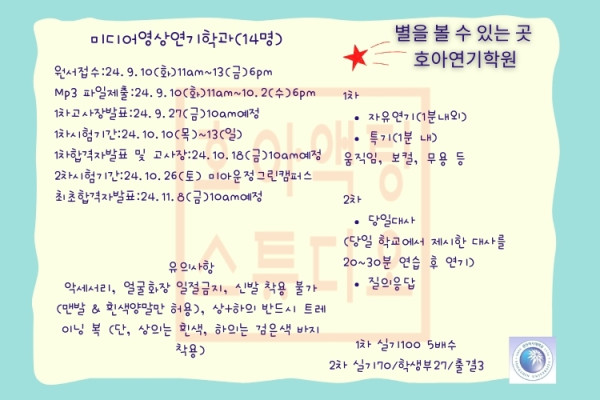 미디어영상연기학과(14명)
원서접수:24.9.10(화)11am~13(금)6pm
Mp3 파일제출:24.9.10(화)11am~10.2(수)6pm
1차고사장발표:24.9.27(금)10am예정
1차시험기간:24.10.10(목)~13(일)
1차합격자발표 및 고사장:24.10.18(금)10am예정
2차시험기간:24.10.26(토) 미아운정그린캠퍼스
최초합격자발표:24.11.8(금)10am예정
유의사항
악세서리, 얼굴화장 일절금지, 신발 착용 불가
(맨발 & 흰색양말만 허용), 상+하의 반드시 트레
이닝 복 (단, 상의는 흰색, 하의는 검은색 바지
착용)
별을 볼 수 있는 곳
호아연기학원
1차
• 자유연기(1분내외)
• 특기(1분 내)
움직임, 보컬, 무용 등
2차
• 당일대사
(당일 학교에서 제시한 대사를
20~30분 연습 후 연기)
• 질의응답
1차 실기100 5배수
2차 실기70/학생부27/출결3
호아액팅
스튜디오